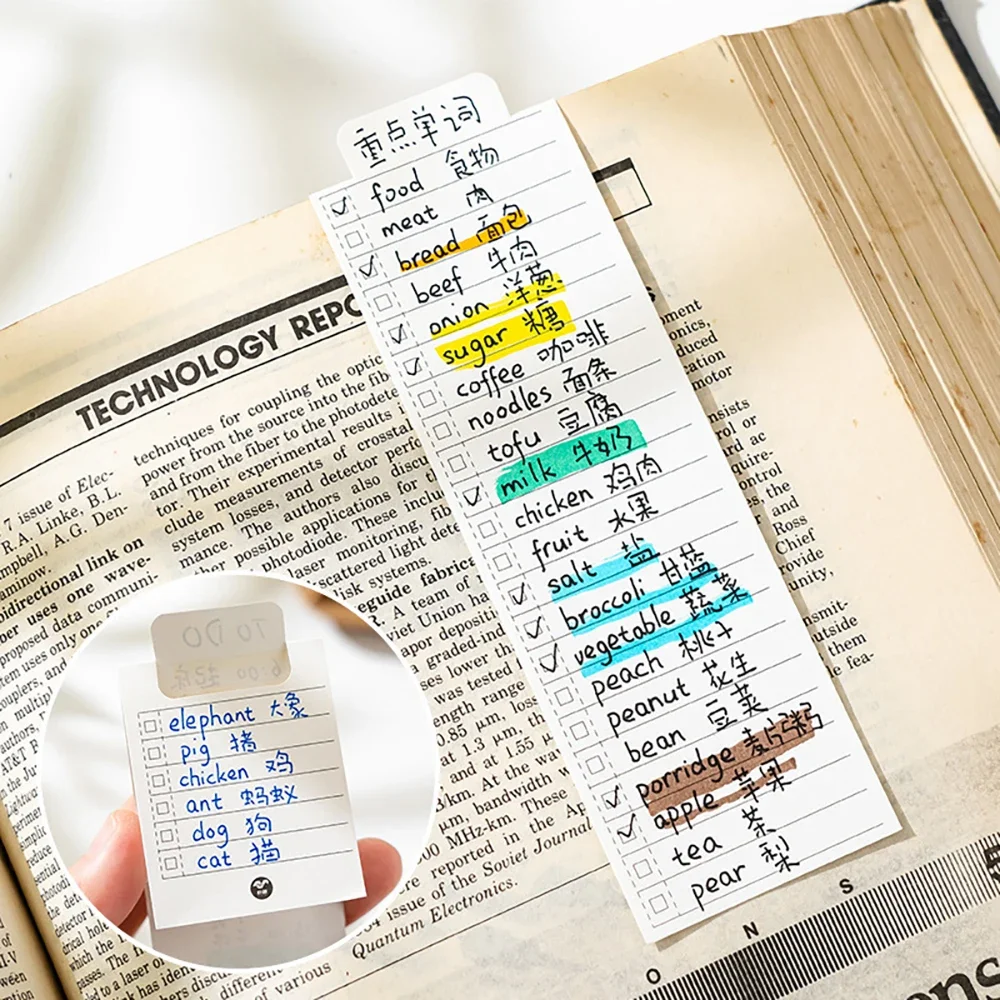 重点单词
food 食物
meat 肉
bread 面包
beef 牛肉
onion 洋葱
sugar 糖
coffee 咖啡
noodles 面条
tofu 豆腐
milk 牛奶
chicken 鸡肉
fruit 水果
salt 盐
broccoli 甘蓝
vegetable 蔬菜
peach 桃子
peanut 花生
bean 豆荚
porridge 麦片粥
apple 苹果
tea 茶
pear 梨
TECHNOLOGY REPO
7 issue of Elec-
R.A. Linke, B.L.
mpbell, A.G. Den-
aminow.
bidirectional link on
per uses one wave-
proposed data communi-
tem uses only one
techniques for coupling the optic
power from the source into the fib
and from the fiber to the photodete
tor. Their experimental results i
clude measurements of crosstal
system losses, and detector perf
mance. The authors also discu
other possible applications for
photodiode. These inclu
laser monitoring, fib
scattered light dete
risk systems.
eguide fabrica
R. A team of
viet Union ha
apor depositi
a graded-ind
ses lower th
was tested
ength range
0.85 μm, loss
at 1.3 μm,
and at 1.55
/km. At the wa
bandwidth w
00 MHz-km. These
re reported in the Ap
issue of the Soviet Journal
Quantum Electronics.
ment
onics,
duced
cation
motor
nsists
rol or
ed ac
quire-
control
g, the
s and
Ross
Chief
rovide
unity,
nsmit-
outside
them
se fea-
TO DO
elephant 大象
pig 猪
chicken 鸡
ant 蚂蚁
dog 狗
cat 猫
O N S
ons